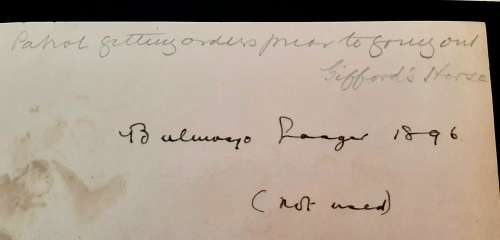 Patrol getting orders prior to going out
Gifford's Horse
Bulawayo Laager 1896
(not used)